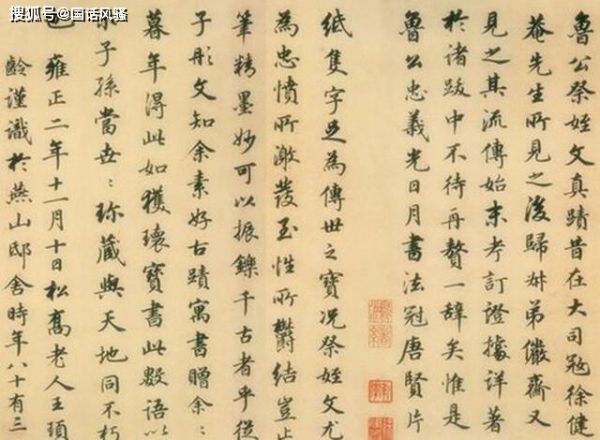 搜狐号@国话风骚
魯公祭姪文真蹟昔在大司寇徐健
菴先生所見之後歸姊弟儼齋又
見之其流傳始末考訂證據詳著
於諸跋中不待再贅一辭矣惟是
魯公忠義光日月書法冠唐賢片
紙隻字足為傳世之寶況祭姪文尤
為忠憤所激發至性所鬱結豈止
筆精墨妙可以振鑠千古者乎從
子彤文知余素好古蹟寓書贈余：
暮年得此如獲瓌寶書此數語以
示子孫當世：珍藏與天地同不朽
也 雍正二年十一月十日松喬老人王頊
齡謹識於燕山邸舍時年八十有三